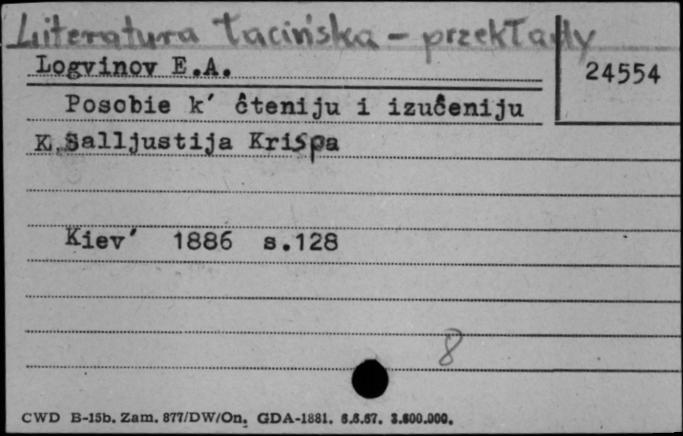 Literatura łacińska - przekłady
Logvinov E.A.
24554
Posobie k' čteniju i izučeniju
K. Salljustija Krispa
Kiev' 1886 s.128
8
CWD B-15b. Zam. 877/DW/On. GDA-1881. 6.6.67. 3.600.000.